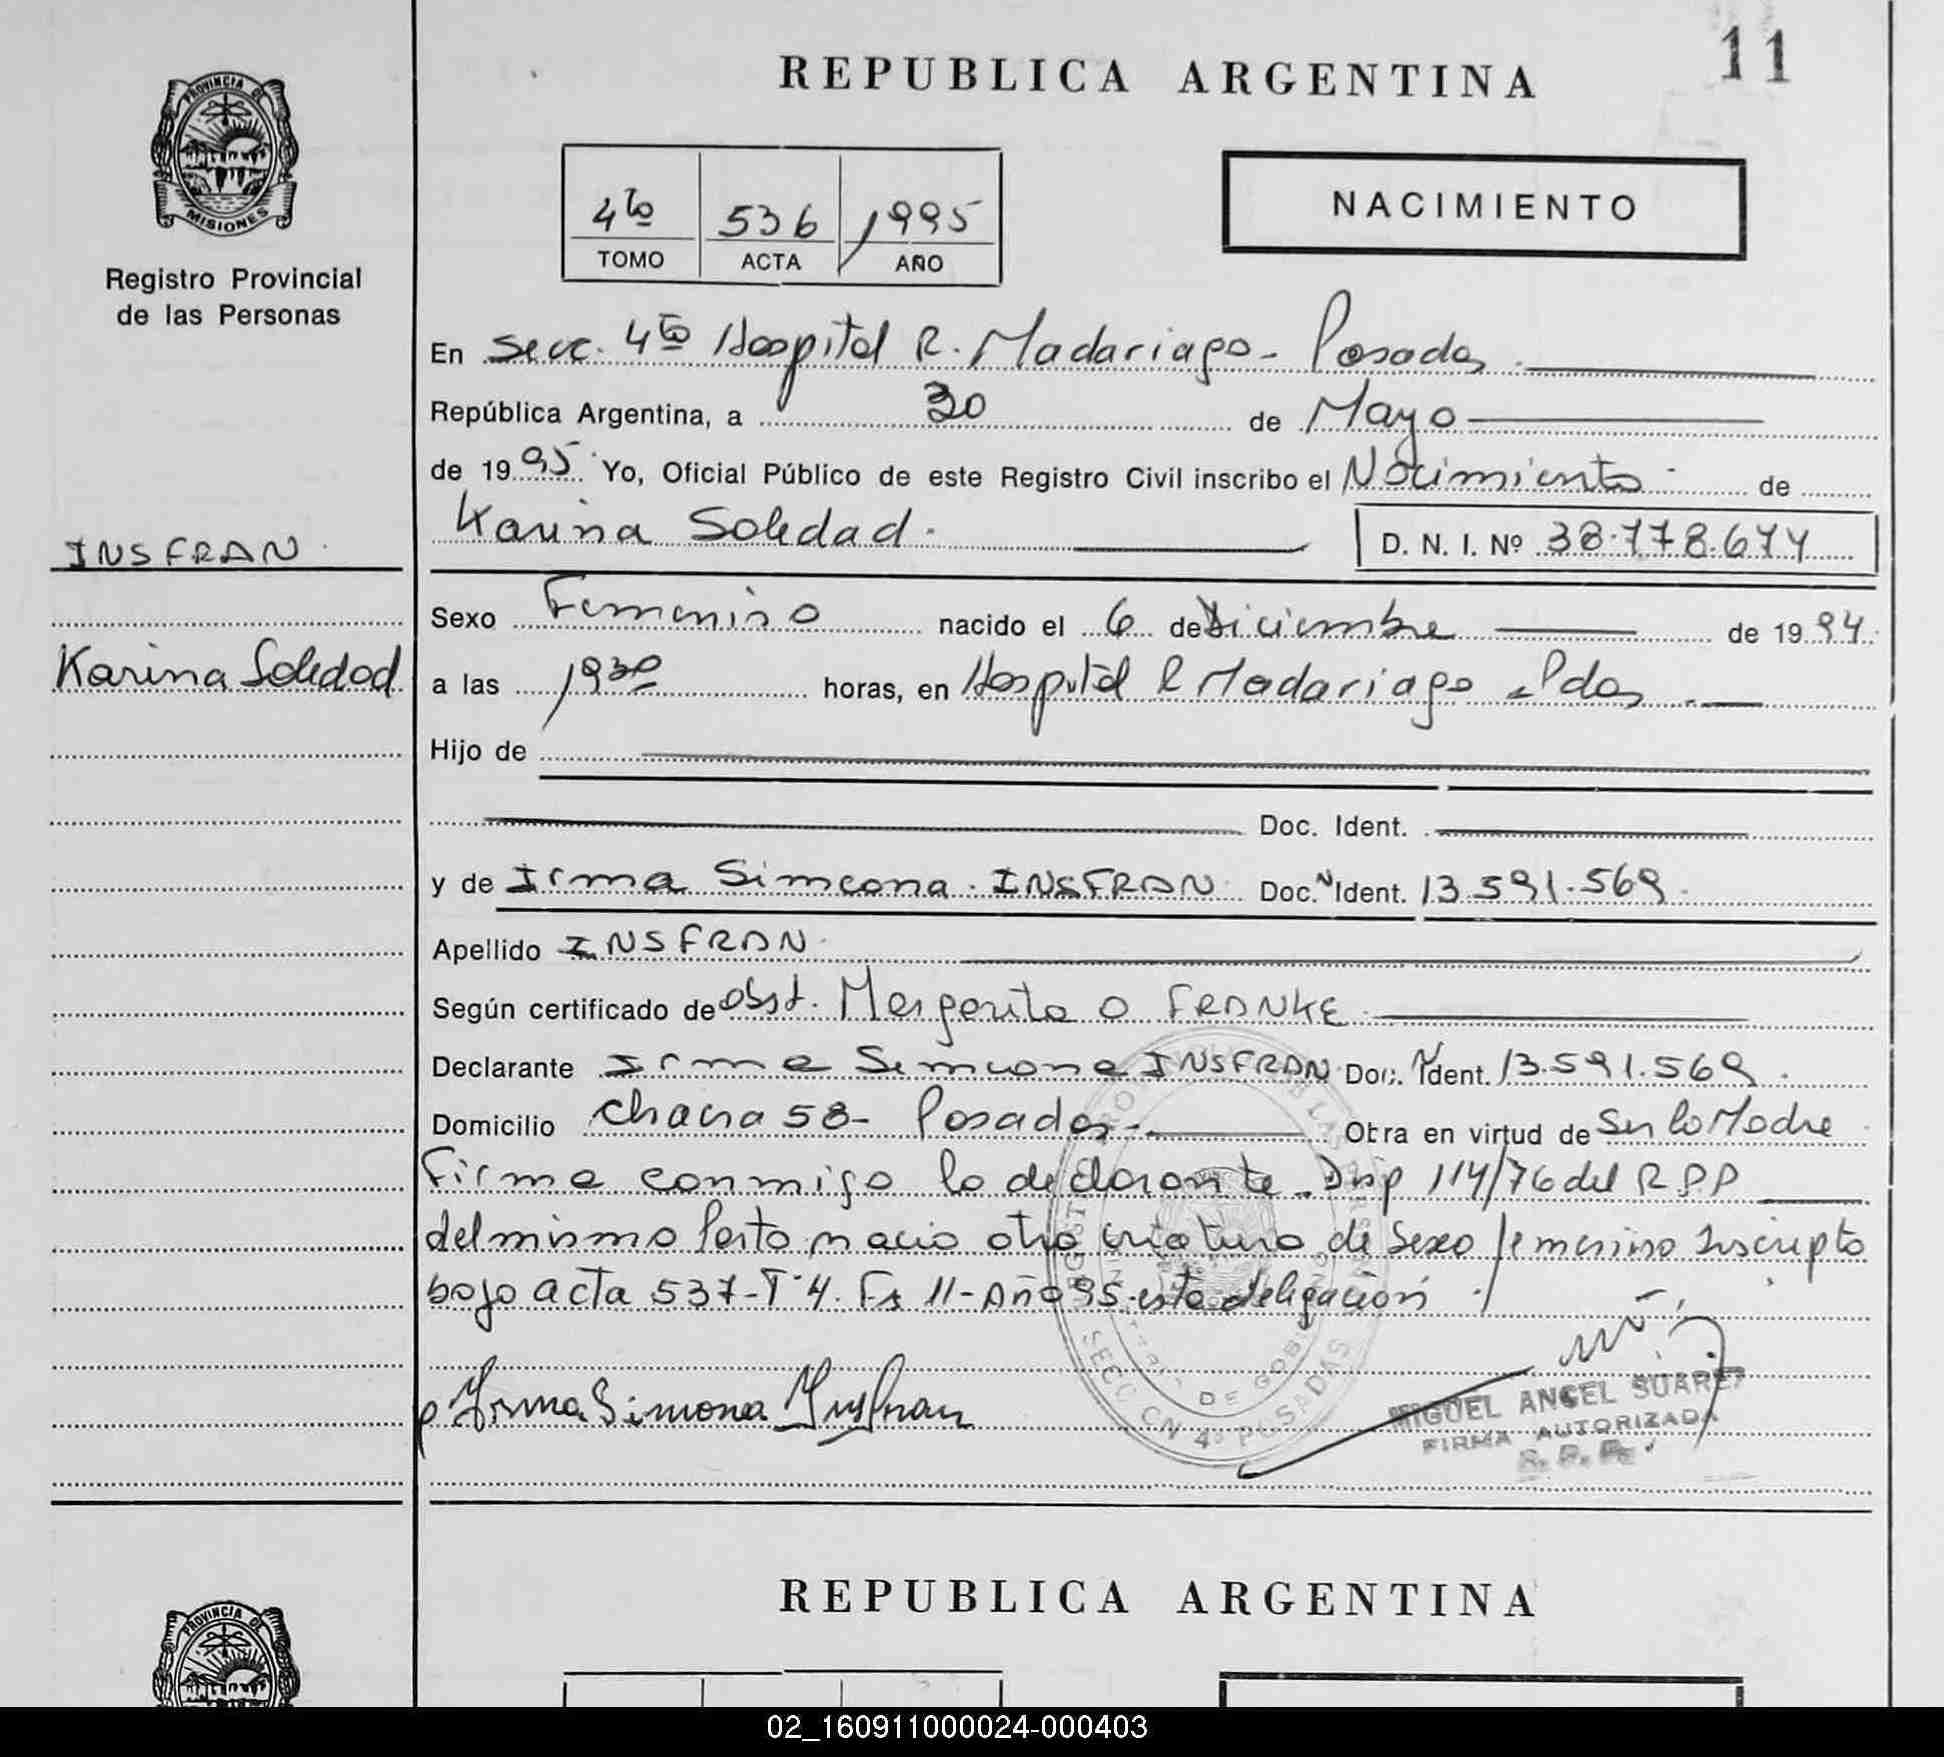 REPUBLICA ARGENTINA
11
PROVINCIA DE
MISIONES
Registro Provincial
de las Personas
4to 536 1995
TOMO ACTA AÑO
NACIMIENTO
En Secc. 4ta Hospital R. Madariaga - Posadas
República Argentina, a 30 de Mayo
de 1995 Yo, Oficial Público de este Registro Civil inscribo el Nacimiento de
Karina Soledad D. N. I. Nº 38.778.674
INSFRAN
Karina Soledad
Sexo Femenino nacido el 6 de Diciembre de 1994
a las 1930 horas, en Hospital R Madariaga - Pdas
Hijo de
Doc. Ident.
y de Irma Simeona INSFRAN Doc. N Ident. 13.591.569
Apellido INSFRAN
Según certificado de obst. Margarita O FRANKE
Declarante Irma Simeona INSFRAN Doc. N Ident. 13.591.569
Domicilio Chacra 58 - Posadas Obra en virtud de Ser la Madre
Firma conmigo la declarante. Disp 114/76 del R.P.P
del mismo Parto nacio otra criatura de Sexo femenino Inscripta
bajo acta 537-Tº4. Fs 11-Año 95 esta delegación
Irma Simeona Insfran
SECCION 4º POSADAS
MIGUEL ANGEL SUAREZ
FIRMA AUTORIZADA
R. P. P.
REPUBLICA ARGENTINA
PROVINCIA DE
02_160911000024-000403